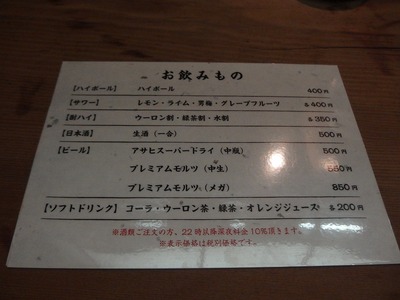 お飲みもの
【ハイボール】 ハイボール 400円
【サワー】 レモン・ライム・男梅・グレープフルーツ 各400円
【酎ハイ】 ウーロン割・緑茶割・水割 各350円
【日本酒】 生酒(一合) 500円
【ビール】 アサヒスーパードライ(中瓶) 500円
プレミアムモルツ(中生) 550円
プレミアムモルツ(メガ) 850円
【ソフトドリンク】 コーラ・ウーロン茶・緑茶・オレンジジュース 各200円
※酒類ご注文の方、22時以降深夜料金10%頂きます。
※表示価格は税別価格です。